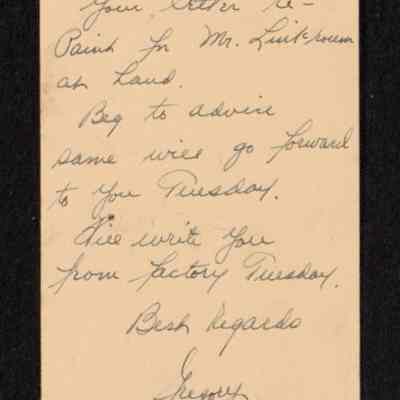 Your letter re-
Paint for Mr.
at hand.
Beg to advise
same will go forward
to you Tuesday.
Will write you
from factory Tuesday.
Best Regards
Gregory